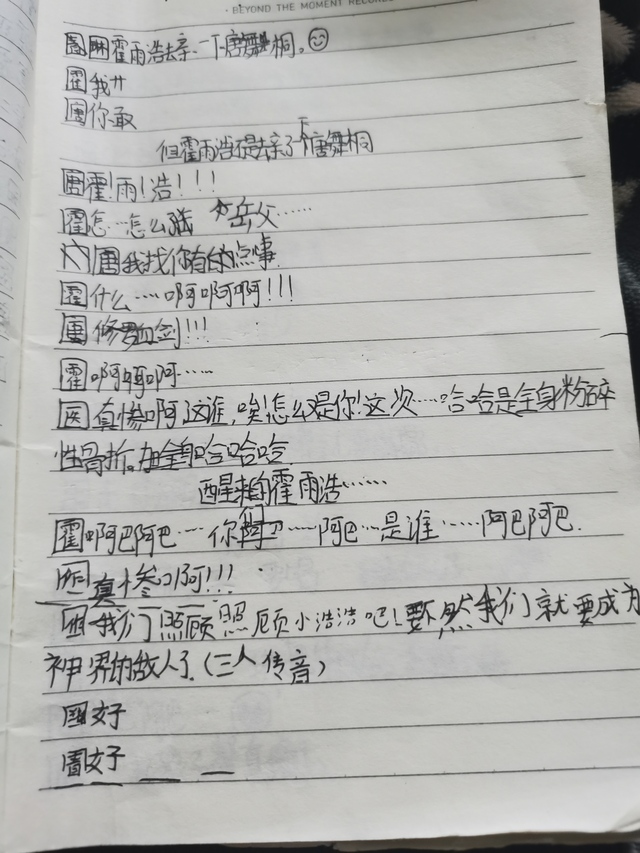 BEYOND THE MOMENT RECORD
霍雨浩去亲一下唐舞桐。
霍 我
唐 你敢
但霍雨浩还是去亲了下唐舞桐
唐 霍！雨！浩！！！
霍 怎…怎么 岳父……
唐 我找你有的点事
霍 什么……啊啊啊！！！
唐 修罗血剑！！！
霍 啊啊啊……
真惨啊这谁，唉！怎么又是你！这次……哈哈是全身粉碎
性骨折。加全身哈哈哈
醒来的霍雨浩……
霍 啊巴阿巴……你们……阿巴…是谁……阿巴阿巴.
真惨啊！！！
我们照顾照顾小浩浩吧！要不然我们就要成为
神界的敌人了（三人传音）
好
好